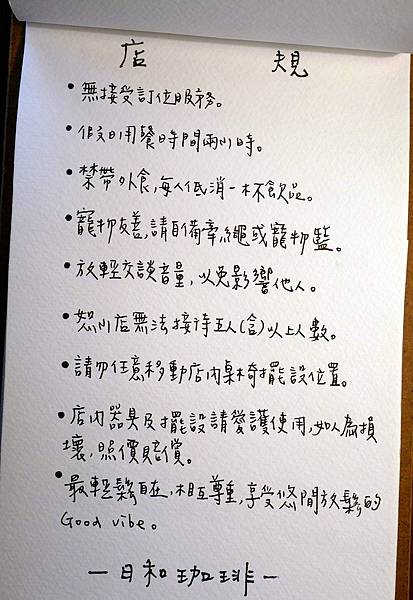 店 規
•無接受訂位服務。
•假日用餐時間兩小時。
•禁帶外食,每人低消一杯飲品。
•寵物友善,請自備牽繩或寵物籃。
•放輕交談音量,以免影響他人。
•恕小店無法接待五人(含)以上人數。
•請勿任意移動店內桌椅擺設位置。
•店內器具及擺設請愛護使用,如人為損
壞,照價賠償。
•最輕鬆自在,相互尊重,享受悠閒放鬆的
Good vibe。
—日和珈琲—